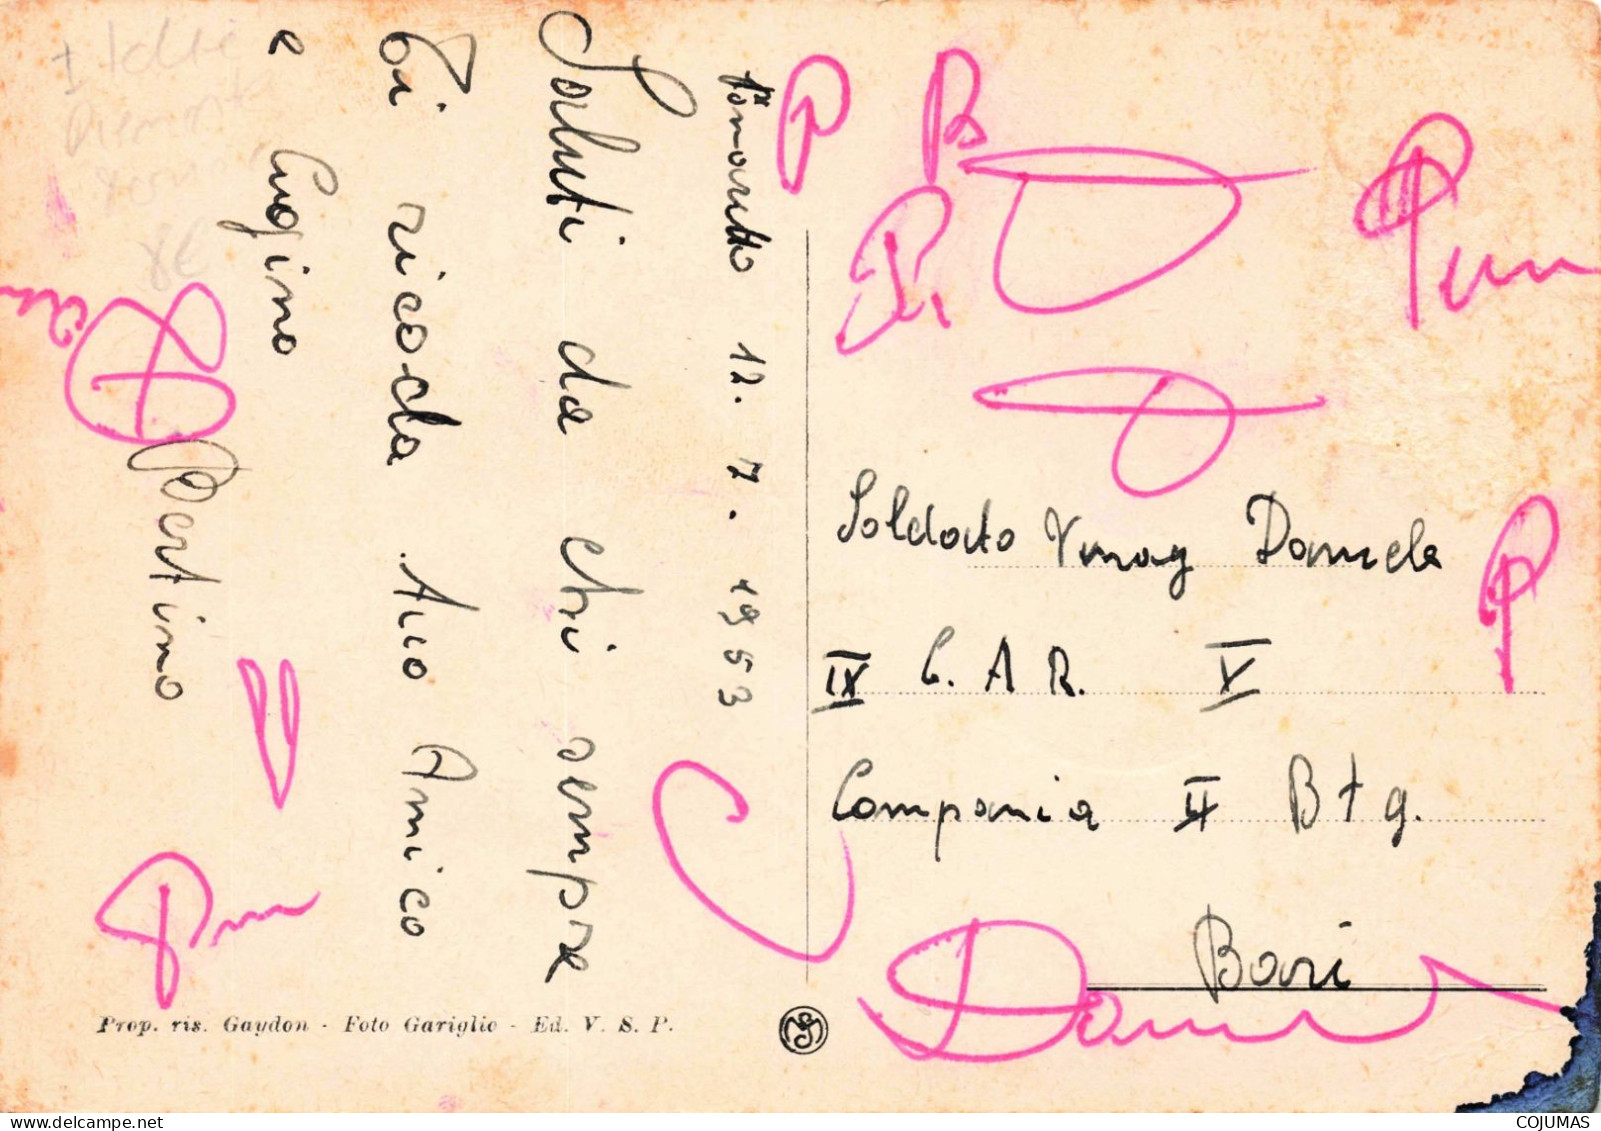 12. 7. 1953
Saluti da chi sempre
ti ricorda tuo Amico
e Cugino
Bertino
Soldato Vinay Daniele
IX C. A R. V
Compania II Btg.
Bari
Prop. ris. Gaydon - Foto Gariglio - Ed. V. S. P.
P
B
P
COJUMAS